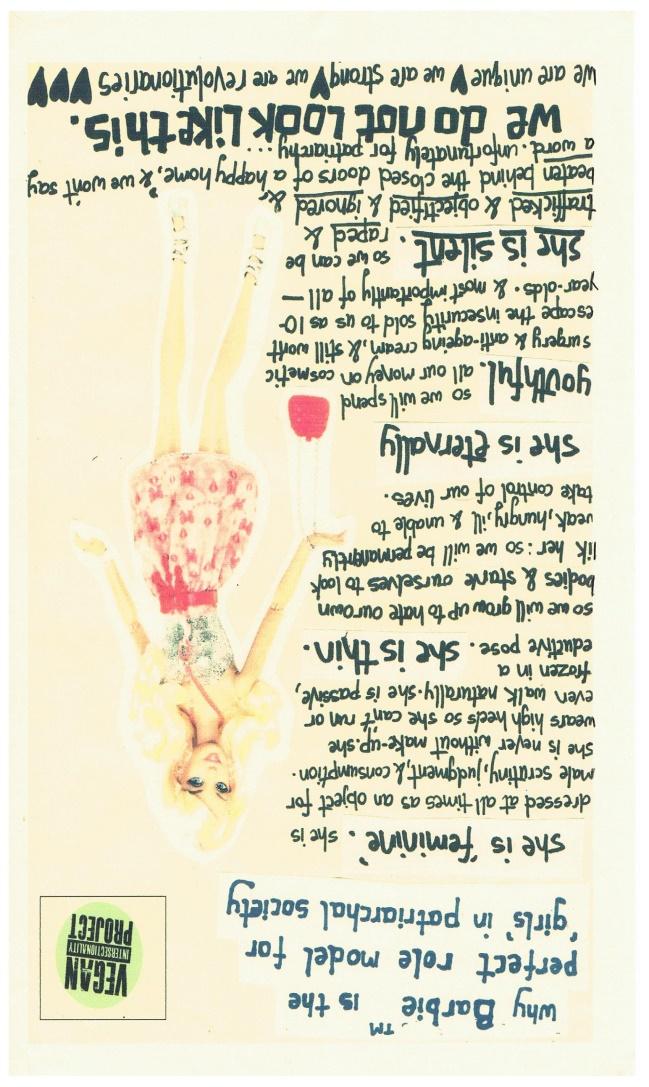 why Barbie™ is the
perfect role model for
'girls' in patriarchal society
VEGAN
INTERSECTIONALITY
PROJECT
she is 'feminine'. she is
dressed at all times as an object for
male scrutiny, judgment, & consumption.
she is never without make-up. she
wears high heels so she can't run or
even walk naturally. she is passive,
frozen in a
eductive pose. she is thin.
so we will grow up to hate our own
bodies & starve ourselves to look
lik her: so we will be permanently
veak, hungry, ill & unable to
take control of our lives.
she is eternally
youthful. so we will spend
all our money on cosmetic
surgery & anti-ageing cream, & still won't
escape the insecurity sold to us as 10-
year-olds. & most importantly of all —
she is silent. so we can be
raped &
trafficked & objectified & ignored &
beaten behind the closed doors of 'a happy home', & we won't say
a word. unfortunately for patriarchy...
we do not look like this.
we are unique ♥ we are strong ♥ we are revolutionaries ♥♥♥